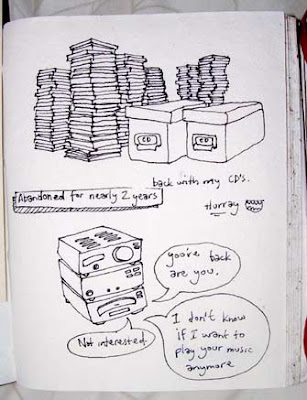 CD
CD
back with my CD's.
Abandoned for nearly 2 years
Hurray
you're back
are you.
I don't know
if I want to
play your music
anymore
Not interested.